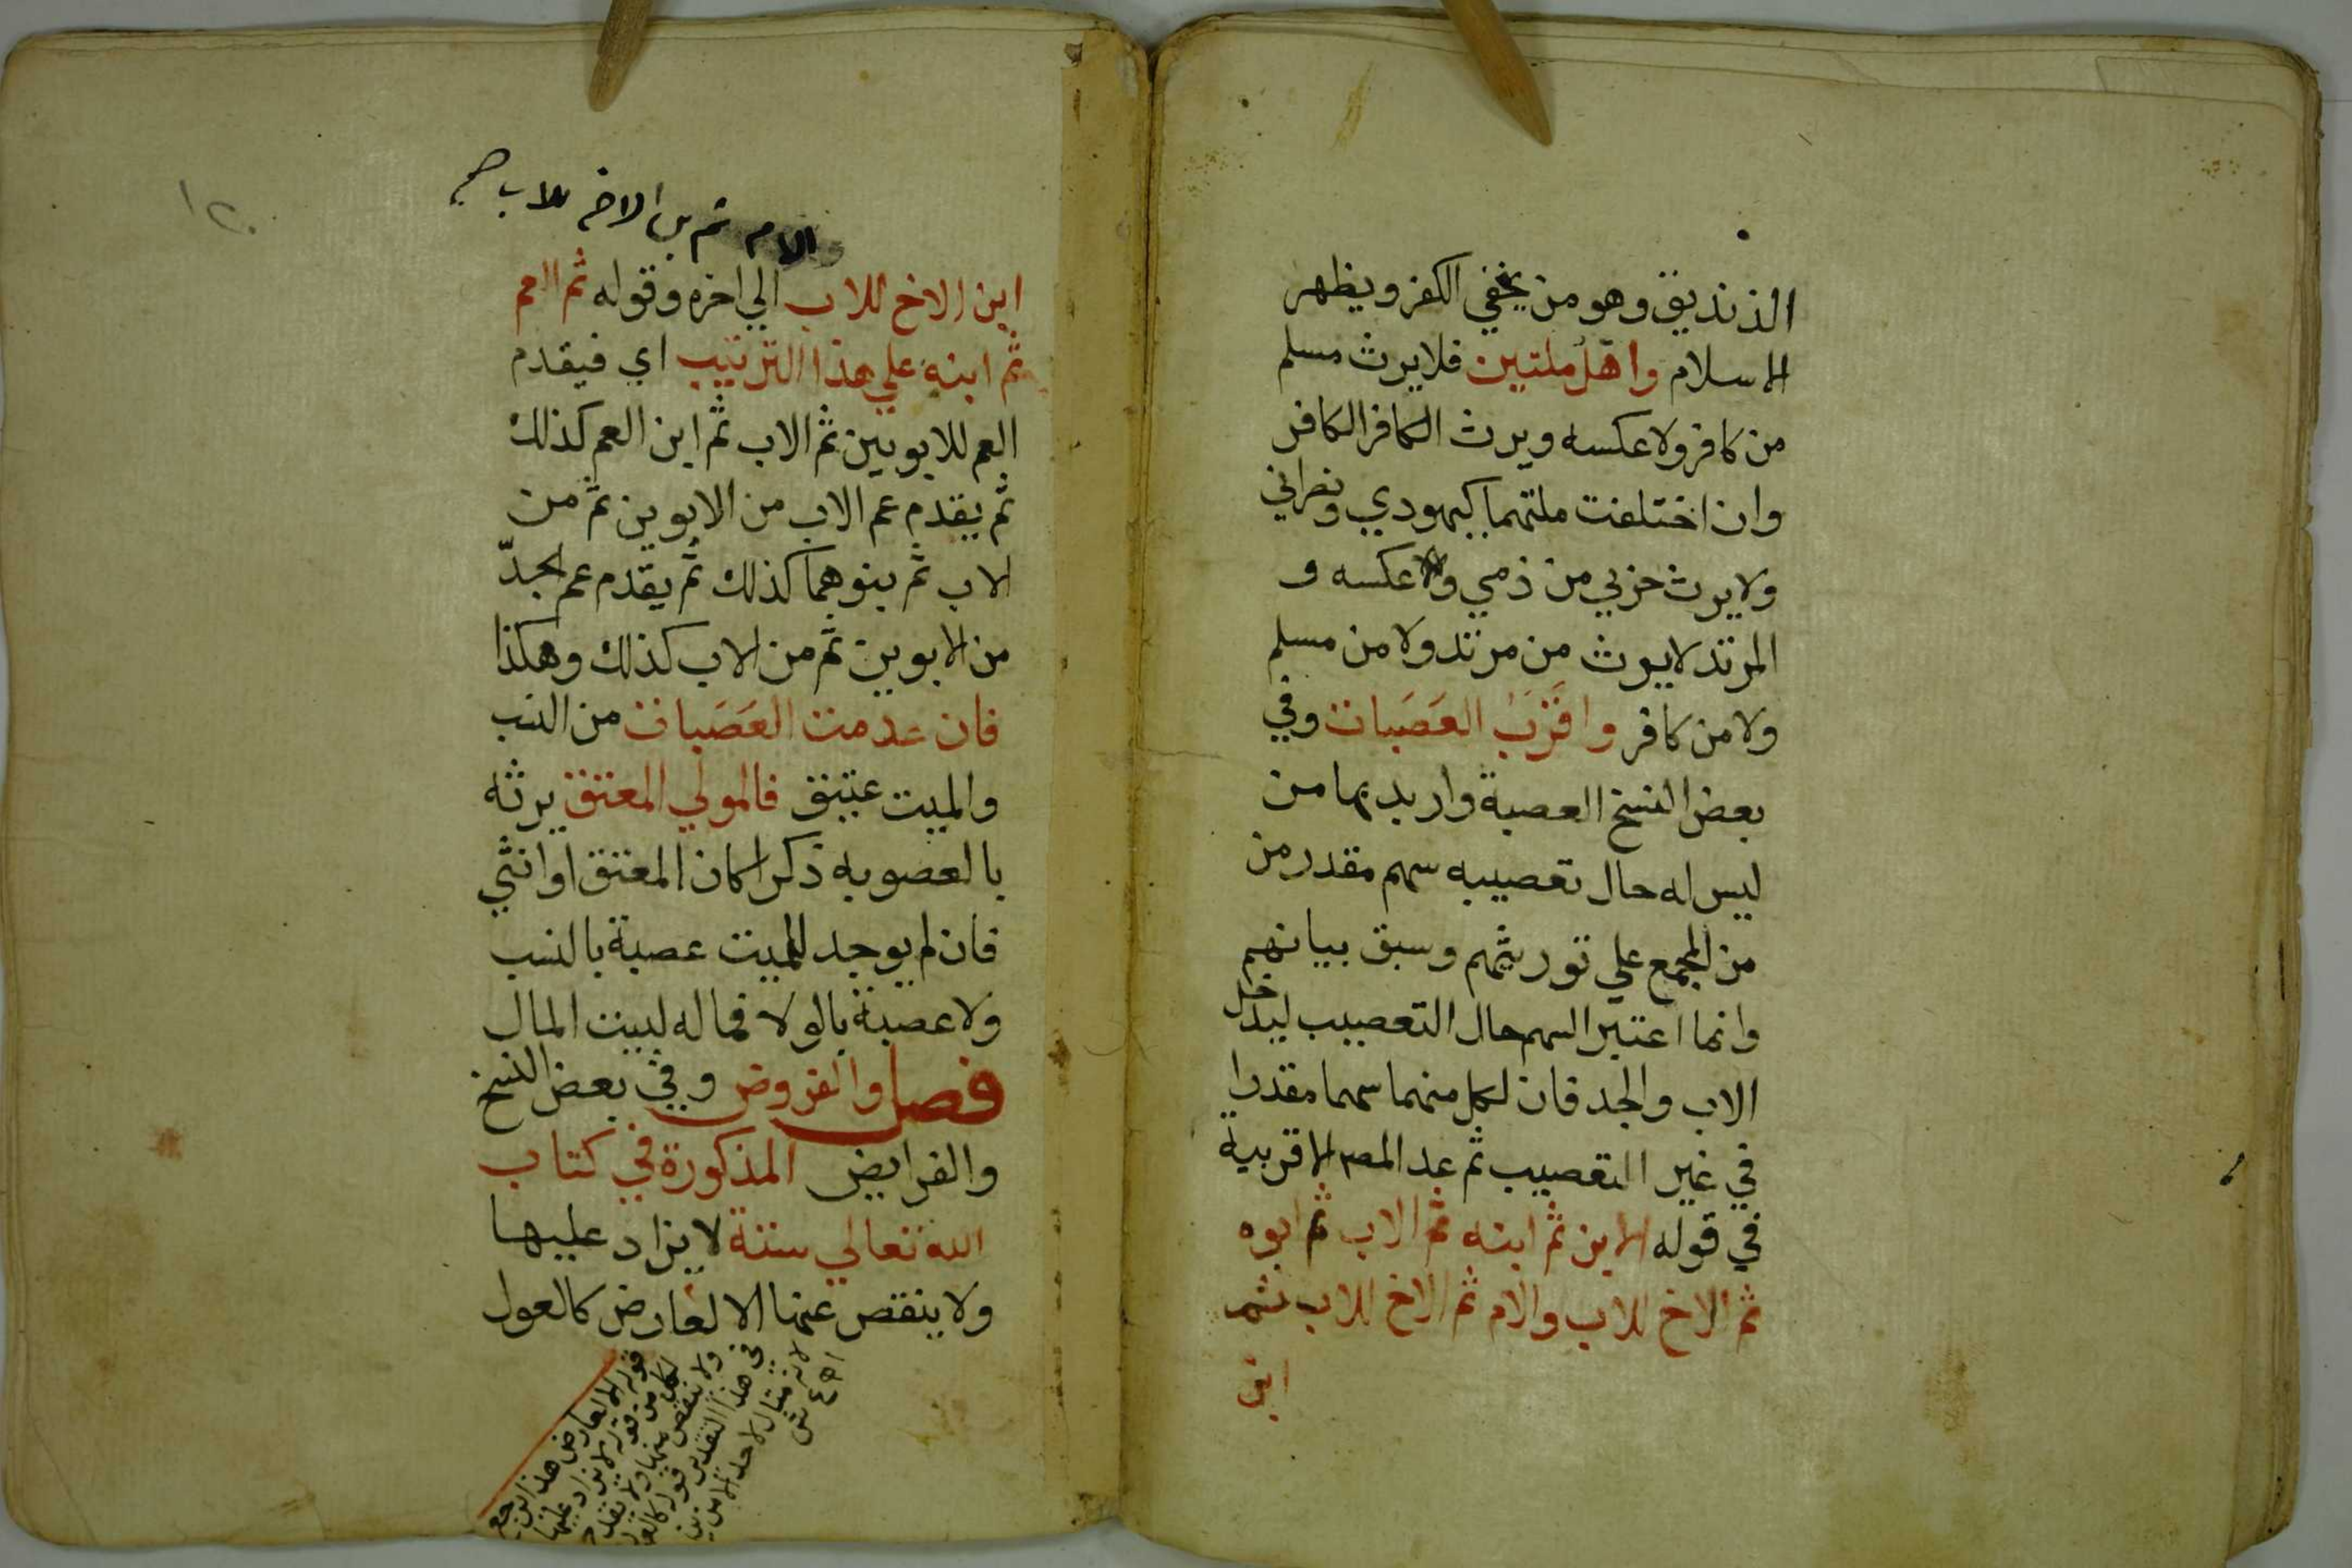 الذنديق وهو من يخفي الكفر ويظهر
الاسلام واهل ملتين فلا يرث مسلم
من كافر ولا عكسه ويرث الكافر الكافر
وان اختلفت ملتهما كيهودي ونصراني
ولا يرث حربي من ذمي ولا عكسه و
المرتد لا يرث من مرتد ولا من مسلم
ولا من كافر واقرَب العَصَبات وفي
بعض النسخ العصبة واريد بها من
ليس له حال تعصيبه سهم مقدر من
من المجمع علي توريثهم وسبق بيانهم
وانما اعتبر السهم حال التعصيب ليدخل
الاب والجد فان لكل منهما سهما مقدرا
في غير التعصيب ثم عد المصه الاقربية
في قوله الابن ثم ابنه ثم الاب ثم ابوه
ثم الاخ للاب والام ثم الاخ للاب ثم
ابن
١٢٠
الام ثم بن الاخ للاب صح
ابن الاخ للاب الي اخره وقوله ثم العم
ثم ابنه علي هذا الترتيب اي فيقدم
العم للابوين ثم الاب ثم ابن العم كذلك
ثم يقدم عم الاب من الابوين ثم من
الاب ثم بنوهما كذلك ثم يقدم عم الجدّ
من الابوين ثم من الاب كذلك وهكذا
فان عدمت العَصَبات من النسب
والميت عتيق فالمولي المعتق يرثه
بالعصوبه ذكرا كان المعتق او انثي
فان لم يوجد للميت عصبة بالنسب
ولا عصبة بالولا فماله لبيت المال
فصل والفروض وفي بعض النسخ
والفرايض المذكورة في كتاب
الله تعالي ستة لا يزاد عليها
ولا ينقص عنها الا لعارض كالعول
قوله الا لعارض هذا يرجع
لكل من قوله لا يزاد عليها
ولا ينقص منها ولا يقدح
في هذا التقدير قوله كالعول
لانه مثال لاحد الامرين